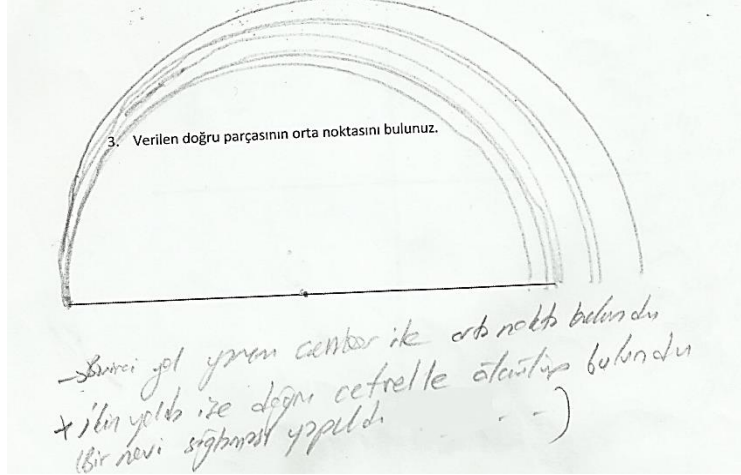 3. Verilen doğru parçasının orta noktasını bulunuz.
→ Birinci yol yarım çember ile orta nokta bulundu
* ikin yolda ise doğru cetvelle ölçülüp bulundu
(Bir nevi yapıldı. - -)